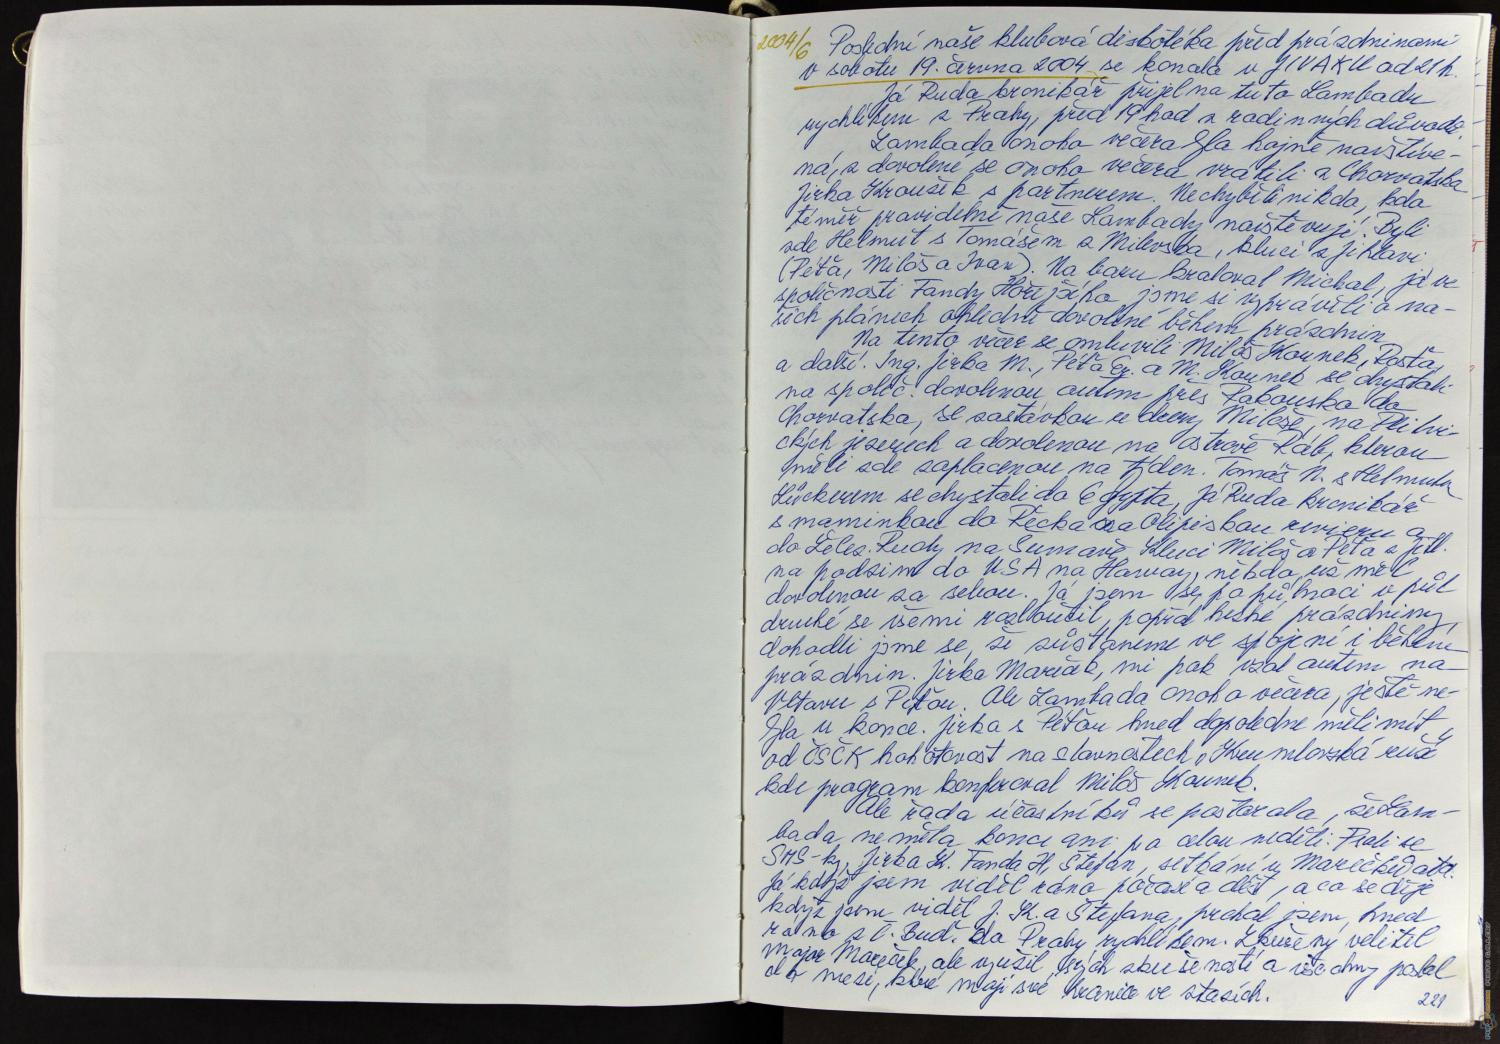 2004/6 Poslední naše klubová diskotéka před prázdninami
v sobotu 19. června 2004 se konala v JIVAKU od 21 h.
Já Ruda kronikář přijel na tuto Lambadu
rychlíkem z Prahy, před 19 hod z rodinných důvodů.
Lambada onoho večera byla hojně navštíve-
ná, z dovolené se onoho večera vrátili z Chorvatska
Jirka Kroužek s partnerem. Nechyběli nikdo, kdo
téměř pravidelně naše Lambady navštěvují. Byli
zde Helmut s Tomášem z Milevska, kluci z Jihlavi
(Péťa, Miloš a Ivan). Na baru kraloval Michal, já ve
společnosti Fandy Hořejšího jsme si vyprávěli o na-
šich plánech ohledně dovolené během prázdnin.
Na tento večer se omluvili Miloš Kounek, Rosťa,
a další. Ing. Jirka M., Péťa a M. Kounek se chystali
na společ. dovolenou autem přes Rakousko do
Chorvatska, se zastávkou u dcery Miloše, na Plitvi-
ckých jezerech a dovolenou na ostrově Rab, kterou
měli zde zaplacenou na týden. Tomáš N. s Helmutem
se chystali do Egypta, já Ruda kronikář
s maminkou do Řecka na Olipiskou rivieru a
do Želez. Rudy na Šumavě. Kluci Miloš a Péťa z Jihl.
na podzim do USA na Hawaj, někdo už měl
dovolenou za sebou. Já jsem se po půlnoci v půl
druhé se všemi rozloučil, popřál hezké prázdniny,
dohodli jsme se, že zůstaneme ve spojení i během
prázdnin. Jirka Mareček, mi pak vzal autem na
Vltavu s Péťou. Ale Lambada onoho večera, ještě ne-
byla u konce. Jirka s Péťou hned dopoledne měli mít
od ČSČK pohotovost na slavnostech "Krumlovská růže"
kde program konferoval Miloš Kounek.
Ale řada účastníků se postarala, že Lam-
bada neměla konce ani po celou neděli. Psali se
SMS-ky, Jirka K. Fanda H, Štefan, setkání u Marečků atd.
Já když jsem viděl ráno počasí a déšť, a co se děje
když jsem viděl J. K. a Štefana, prchal jsem hned
ráno z Č. Buď. do Prahy rychlíkem. Zkušený velitel
major Mareček, ale využil svých zkušeností a všechny poslal
do mezí, které mají své hranice ve stazích.
221